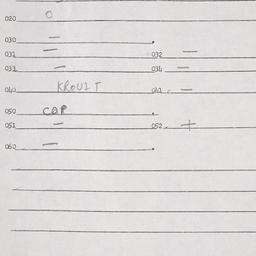 020 0
030 —
031 — 032 —
033 — 034 —
040 KROUIT 041 —
050 COP
051 — 052 +
060 —